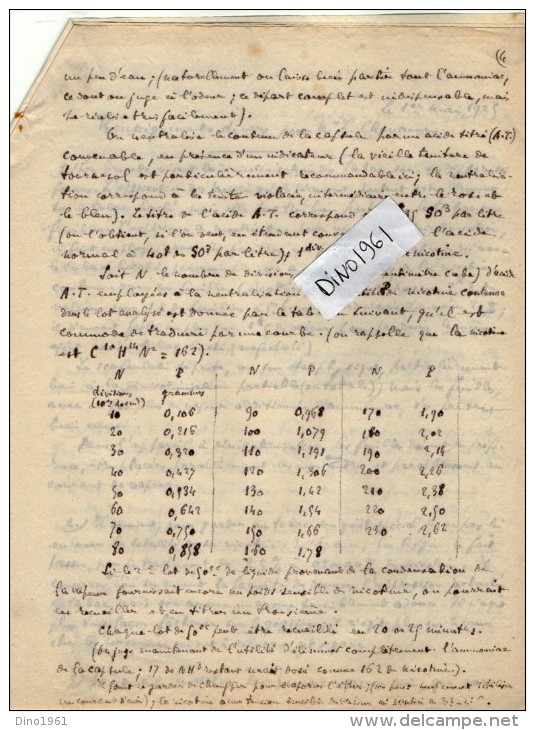 (4
un peu d'eau; (naturellement on laisse bien partir tout l'ammoniac,
ce dont on juge à l'odeur; ce départ complet est indispensable, mais
se réalise très facilement).
On neutralise le contenu de la capsule par un acide titré (A.T.)
convenable, en présence d'un indicateur (la vieille teinture de
tournesol est particulièrement recommandable ici; la neutralisa-
tion correspond à la teinte violacée, intermédiaire entre le rose et
le bleu). Le titre de l'acide A.T. correspond SO3 par litre
(on l'obtient, si l'on veut, en étendant l'acide
normal à 40 gr de SO3 par litre); 1 div. nicotine.
Soit N le nombre de divisions (centimètre cube) d'acide
A.T. employées à la neutralisation de nicotine contenue
dans le lot analysé est donnée par le tableau suivant, qu'il est
commode de traduire par une courbe. (on rappelle que la nicotine
est C10 H14 N2 = 162).
N P N P N P
divisions grammes
(10es de cm3)
10 0,106 90 0,968 170 1,90
20 0,216 100 1,079 180 2,02
30 0,320 110 1,191 190 2,14
40 0,427 120 1,306 200 2,26
50 0,534 130 1,42 210 2,38
60 0,642 140 1,54 220 2,50
70 0,750 150 1,66 230 2,62
80 0,858 160 1,78
Si le 2e lot de 50cc de liquide provenant de la condensation de
la vapeur fournissait encore un poids sensible de nicotine, on pourrait
en recueillir et en titrer un troisième.
Chaque lot de 50cc peut être recueilli en 20 ou 25 minutes.
(On juge maintenant de l'utilité d'éliminer complètement l'ammoniac
de la capsule; 17 de AH3 restant serait dosé comme 162 de nicotine).
Il faut se garder de chauffer pour évaporer l'éther; (on peut
un courant d'air); la nicotine a une tension sensible de vapeur
Dino1961
Dino1961
www.delcampe.net